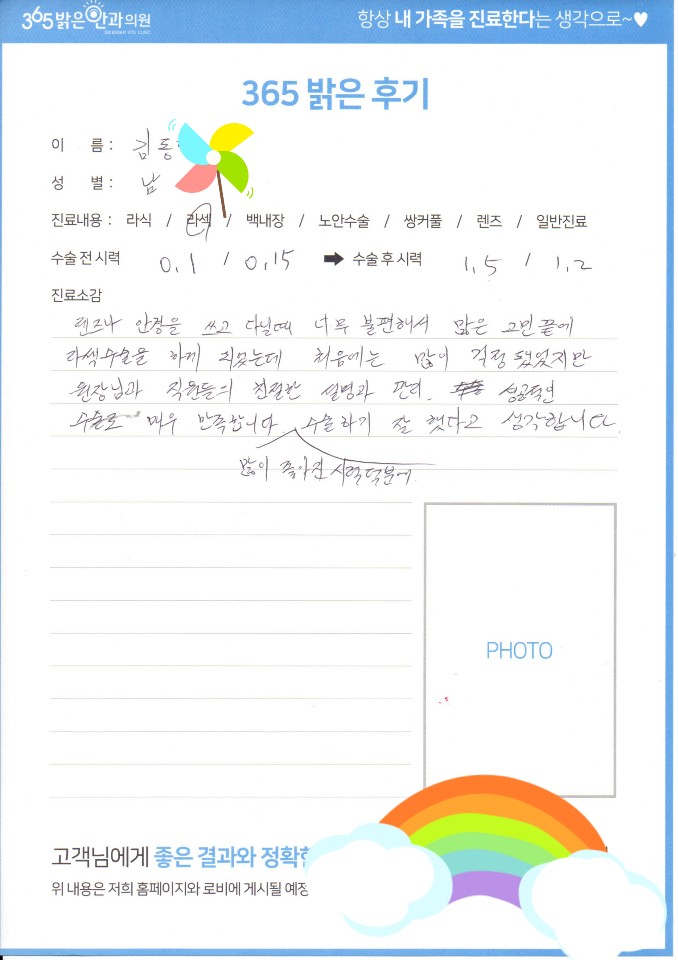 365 밝은안과의원
항상 내 가족을 진료한다는 생각으로~♥
365 밝은 후기
이 름 : 김동
성 별 : 남
진료내용 : 라식 / 라섹 / 백내장 / 노안수술 / 쌍커풀 / 렌즈 / 일반진료
수술 전 시력 0.1 / 0.15 ➡ 수술 후 시력 1.5 / 1.2
진료소감
렌즈나 안경을 쓰고 다닐때 너무 불편해서 많은 고민 끝에
라섹수술을 하게 되었는데 처음에는 많이 걱정 했었지만
원장님과 직원들의 친절한 설명과 관리. 성공적인
수술로 매우 만족합니다. 수술하기 잘 했다고 생각합니다.
많이 좋아진 시력덕분에
PHOTO
고객님에게 좋은 결과와 정확한
위 내용은 저희 홈페이지와 로비에 게시될 예정